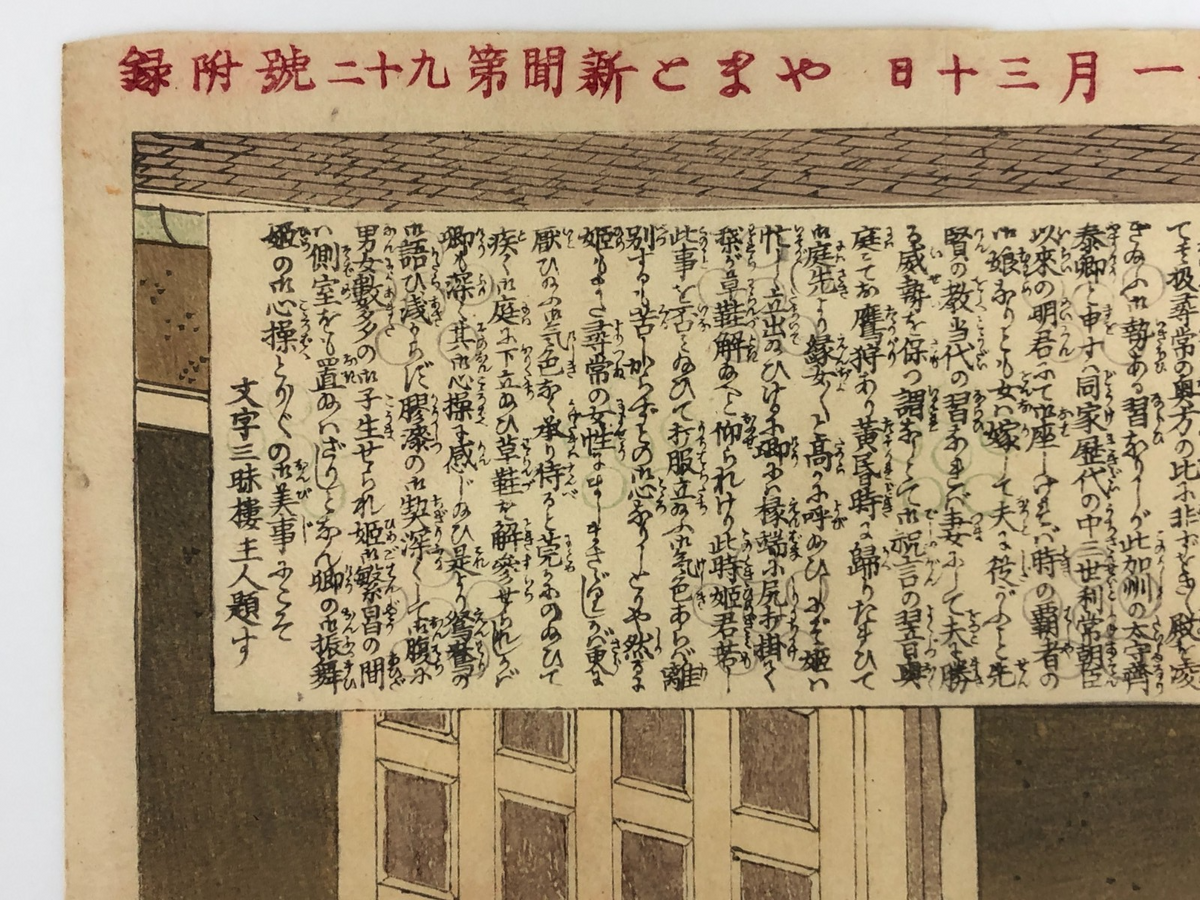 一月三十日 やまと新聞第九十二號附録
てそ扱尋常の奥方の比に非ずをきく殿を凌
きゐふ御勢ある習なりしが此加州の太守齊
泰卿と申すハ同家歴代の中三世利常朝臣
以來の明君にて御座しけれバ時の覇者の
御娘なりとも女ハ嫁して夫に役がふと先
賢の教当代の習なれバ妻にして夫に勝
る威勢を保つ謂なしとて御祝言の翌日奥
庭にてお鷹狩あり黄昏時に歸りたまひて
御庭先より縁女く と高かに呼ゐひしにぞ姫ハ
忙しく立出ゐひけるに卿にハ椽端に尻打掛て
穐が草鞋解ゐへと仰られけり此時姫君若し
此事を否とゐひて打服立ゐふ御気色あらバ離
別するも苦しからずとの御心なりしとぞや然るに
姫もまた尋常の女性にましまさゞれバ更に
厭ひゐふ御気色なく承り侍ると莞かにのゐひて
疾く御庭に下立ゐひ草鞋を解參せられしが
卿も深く其御心操に感じゐひ是より鴛鴦の
御語ひ浅からず膠漆の御契深くして御腹に
男女數多の御子生せられ姫御繁昌の間
ハ側室をも置ゐハざりしとなん卿の御振舞
姫の御心操とりぐの御美事にこそ
文字三昧樓主人題す